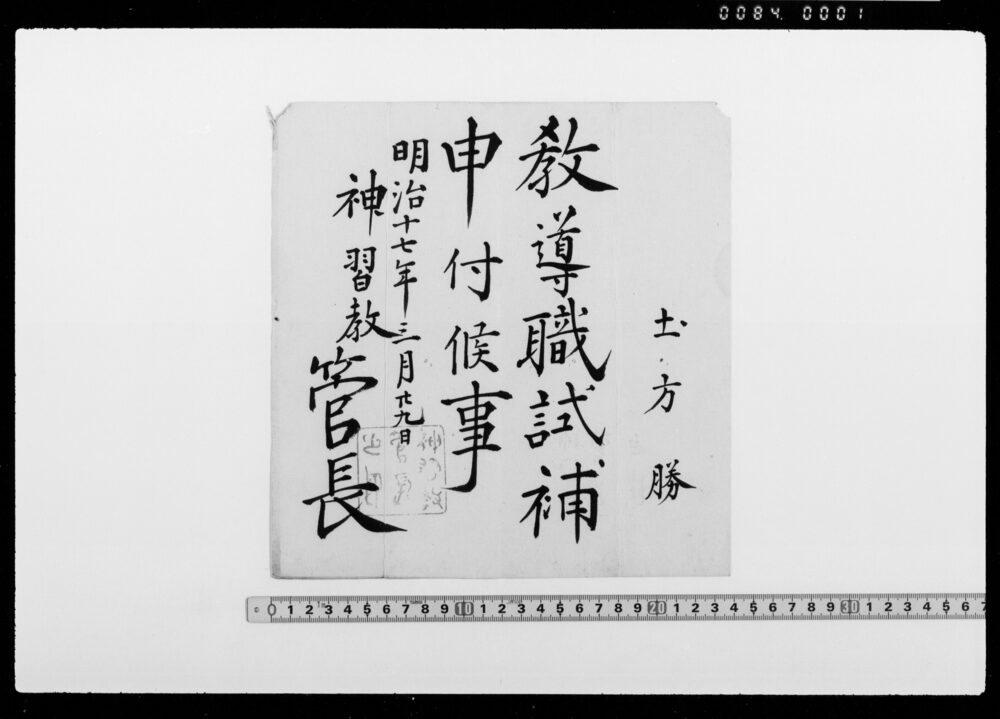 0084. 0001
土方勝
教導職試補
申付候事
明治十七年三月廿九日
神習教管長
0 1 2 3 4 5 6 7 8 9 10 1 2 3 4 5 6 7 8 9 20 1 2 3 4 5 6 7 8 9 30 1 2 3 4 5 6 7